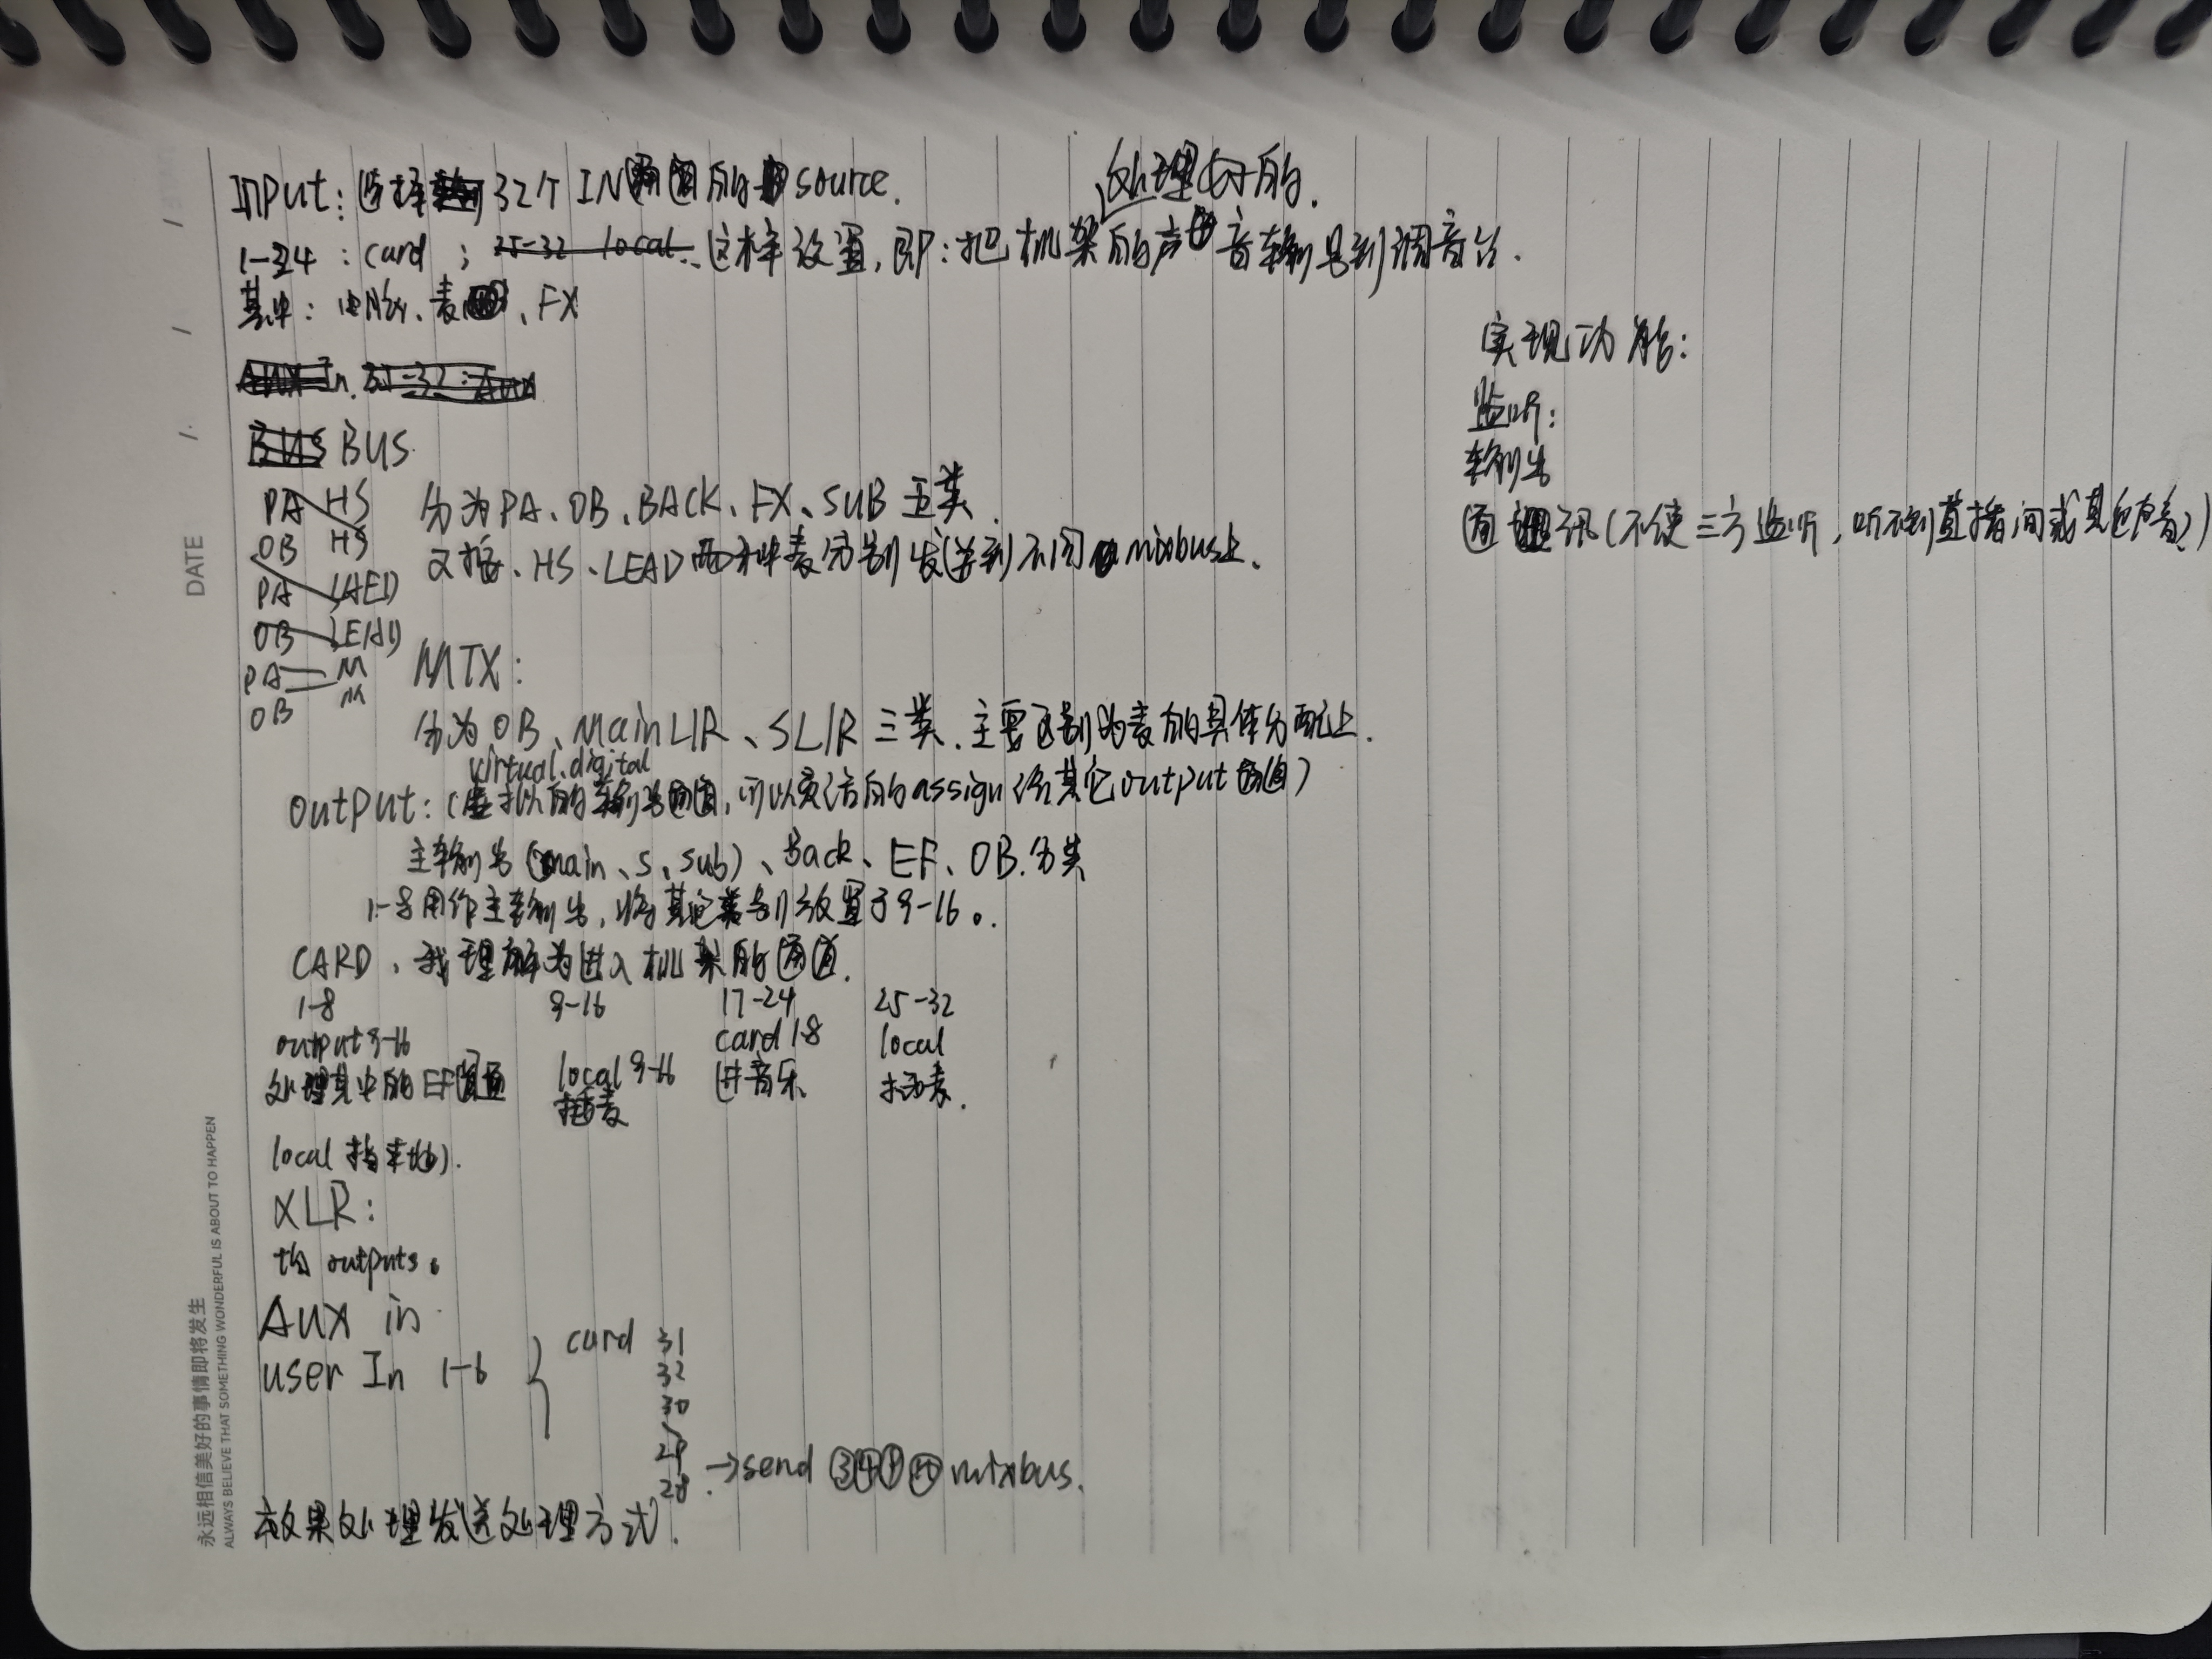 INPUT: 选择32个IN通道的source.
处理好的.
1-24 : card ; 25-32 local. 这样设置, 即: 把机架的声音输出到调音台.
其中: 电脑、麦、FX
实现功能:
监听:
输出
通讯(不使三方监听, 听不到直播间或其它声音?)
AUX In. 31-32: AUX
BUS BUS
PA HS
OB HS
PA LEAD
OB LEAD
PA M
OB M
分为PA、OB、BACK、FX、SUB 五类.
又按、HS、LEAD两种麦分别发送到不同mixbus上.
MTX:
分为OB、Main L/R、SL/R 三类. 主要区别为麦的具体分配上.
virtual.digital
output: (虚拟的输出通道, 可以灵活的assign给其它output通道)
主输出(main、S、sub)、Back、EF、OB.分类
1-8用作主输出, 将其它类别放置于9-16。
CARD、我理解为进入机架的通道.
1-8 9-16 17-24 25-32
output 9-16 local 9-16 card 1-8 local
处理其中的EF通道 插麦 进音乐 插麦.
local 指本地).
XLR:
均 outputs。
AUX in
user In 1-6 { card 31
32
30
29
28. →send ③④ mixbus.
效果处理发送处理方式.
DATE
永远相信美好的事情即将发生
ALWAYS BELIEVE THAT SOMETHING WONDERFUL IS ABOUT TO HAPPEN